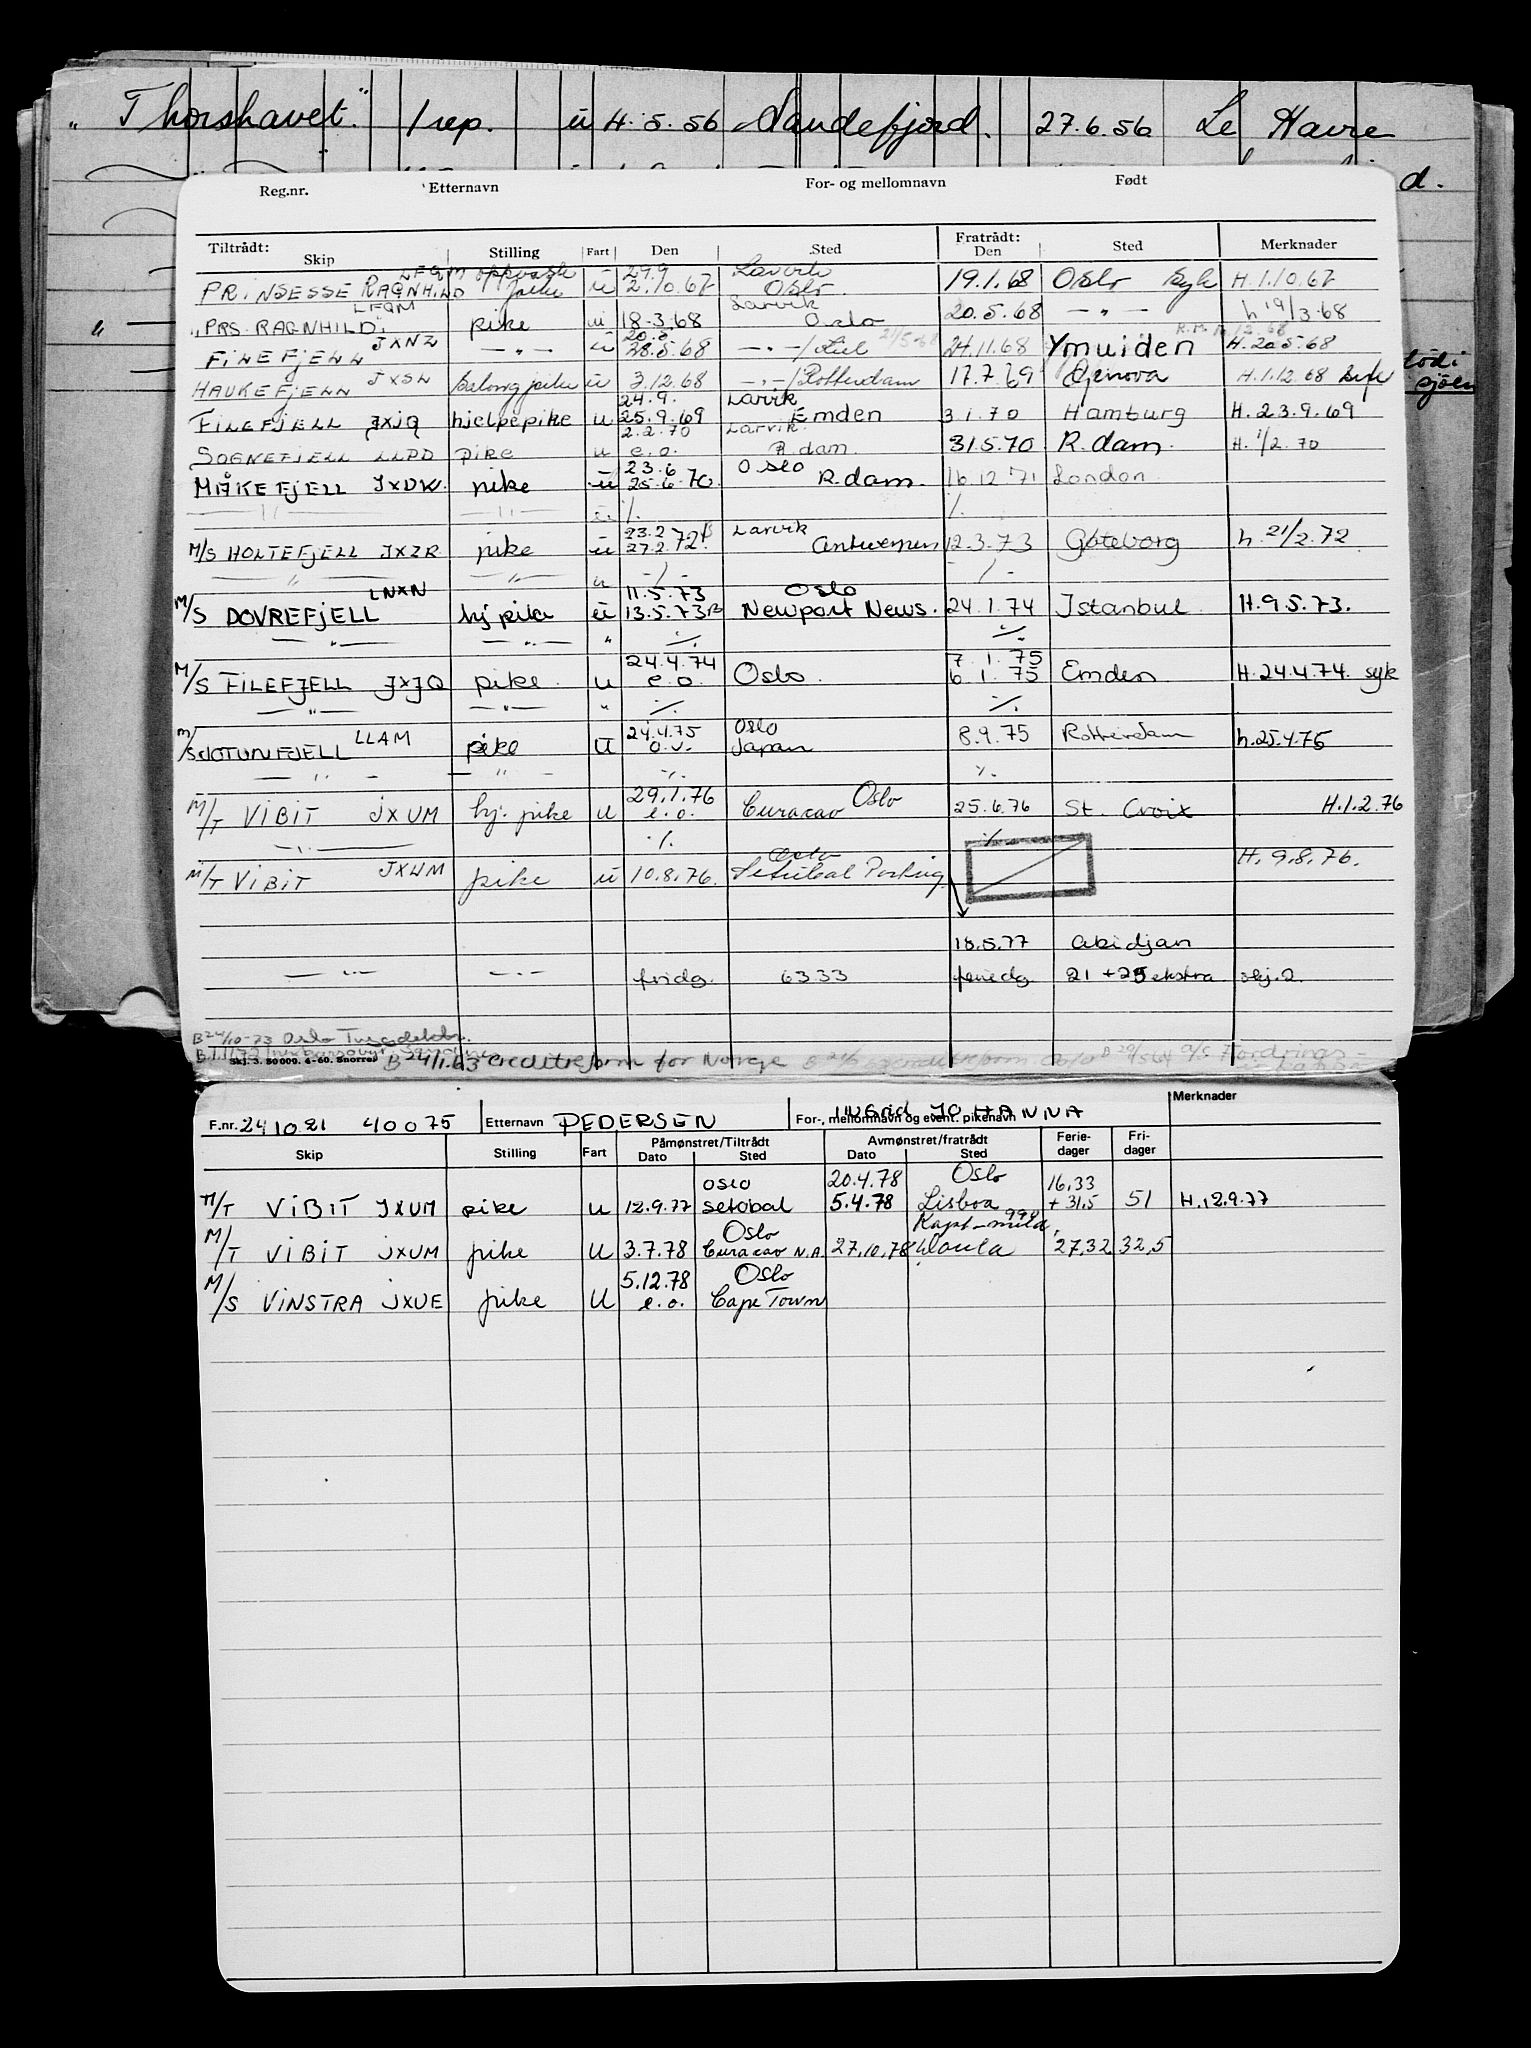 "Thorshavet." 1 rep. ü 4.5.56 Sandefjord. 27.6.56 Le Havre
d.
Reg.nr. Etternavn For- og mellomnavn Født
Tiltrådt: Skip Stilling Fart Den Sted Fratrådt: Den Sted Merknader
LFQM oppvask 29.9 Larvik
PRINSESSE RAGNHILD pike ü 2.10.67 Oslo 19.1.68 Oslo syk H.1.10.67
LFQM Larvik
" PRS. RAGNHILD. pike ü 18-3.68 Oslo 20.5.68 -"- h 19/3-68
JXNZ 20.5.
FILEFJELL -"- ü 28.5.68 -"-/Kiel 24.11.68 Ymuiden H.20.5.68
HAUKEFJELL JXSL salongpike ü 3.12.68 -"-/Rotterdam 17.7.69 Genova H.1.12.68
24.9. Larvik
FILEFJELL JXJQ hjelpepike u 25.9.69 Emden 3.1.70 Hamburg H.23.9.69
2.2.70 Larvik.
SOGNEFJELL LLPD pike u e.o. R.dam. 31.5.70 R.dam. H. 1/2.70
23.6 Oslo
MÅKEFJELL JXDW. pike ü 25.6.70. R.dam. 16.12.71 London
-"- -"- ü ./. ./.
23.2 Larvik
M/S HOLTEFJELL JXZR pike ü 27.2.72 Antwerpen 12.3.73 Gøteborg h.21/2.72
-"- -"- u -/- -/-
LNXN 11.5.73 Oslo
M/S DOVREFJELL hj pike ü 13.5.73 Newport News. 24.1.74 Istanbul H.9.5.73.
-"- -"- " ./. ./.
24.4.74 7.1.75
M/S FILEFJELL JXJQ pike u e.o. Oslo. 6.1.75 Emden H.24.4.74. syk
-"- -"- " ./. ./.
LLAM 24.4.75 Oslo
M/S JOTUNFJELL pike ü o.v. Japan 8.9.75 Rotterdam h.25.4.75
-"- -"- ./. ./.
29.1.76 Oslo
M/T VIBIT JXUM hj. pike u e.o. Curacao 25.6.76 St. Croix H.1.2.76
-"- ./. ./.
Oslo
M/T VIBIT JXUM pike ü 10.8.76. Setubal H. 9.8.76.
18.5.77 Abidjan
-"- -"- fridg. 63.33 feriedg. 21 + 25 ekstra skj.2
B 24/10-73 Oslo
Skj. 3. 50 000. 4-60. Snorres B 24/1.63 Creditreform for Norge
F.nr. 241021 40075 Etternavn PEDERSEN For-, mellomnavn og event. pikenavn INGRID JOHANNA Merknader
Skip Stilling Fart Påmønstret/Tiltrådt Dato Sted Avmønstret/fratrådt Dato Sted Ferie-dager Fri-dager
Oslo 20.4.78 Oslo 16,33
M/T VIBIT JXUM pike u 12.9.77 Setubal 5.4.78 Lisboa + 31,5 51 H.12.9.77
Oslo
M/T VIBIT JXUM pike U 3.7.78 Curacao N.A 27.10.78 27,32 32,5
5.12.78 Oslo
M/S VINSTRA JXUE pike U e.o. Cape Town